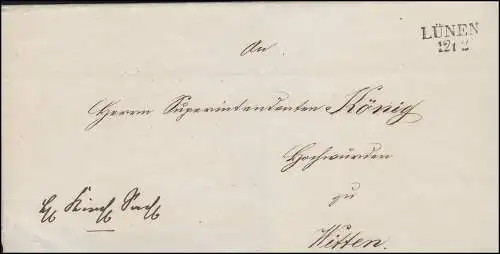 LÜNEN
12 1 2
An
Herrn Superintendenten König
Hochwürden
zu
Kirch Sach
Witten.